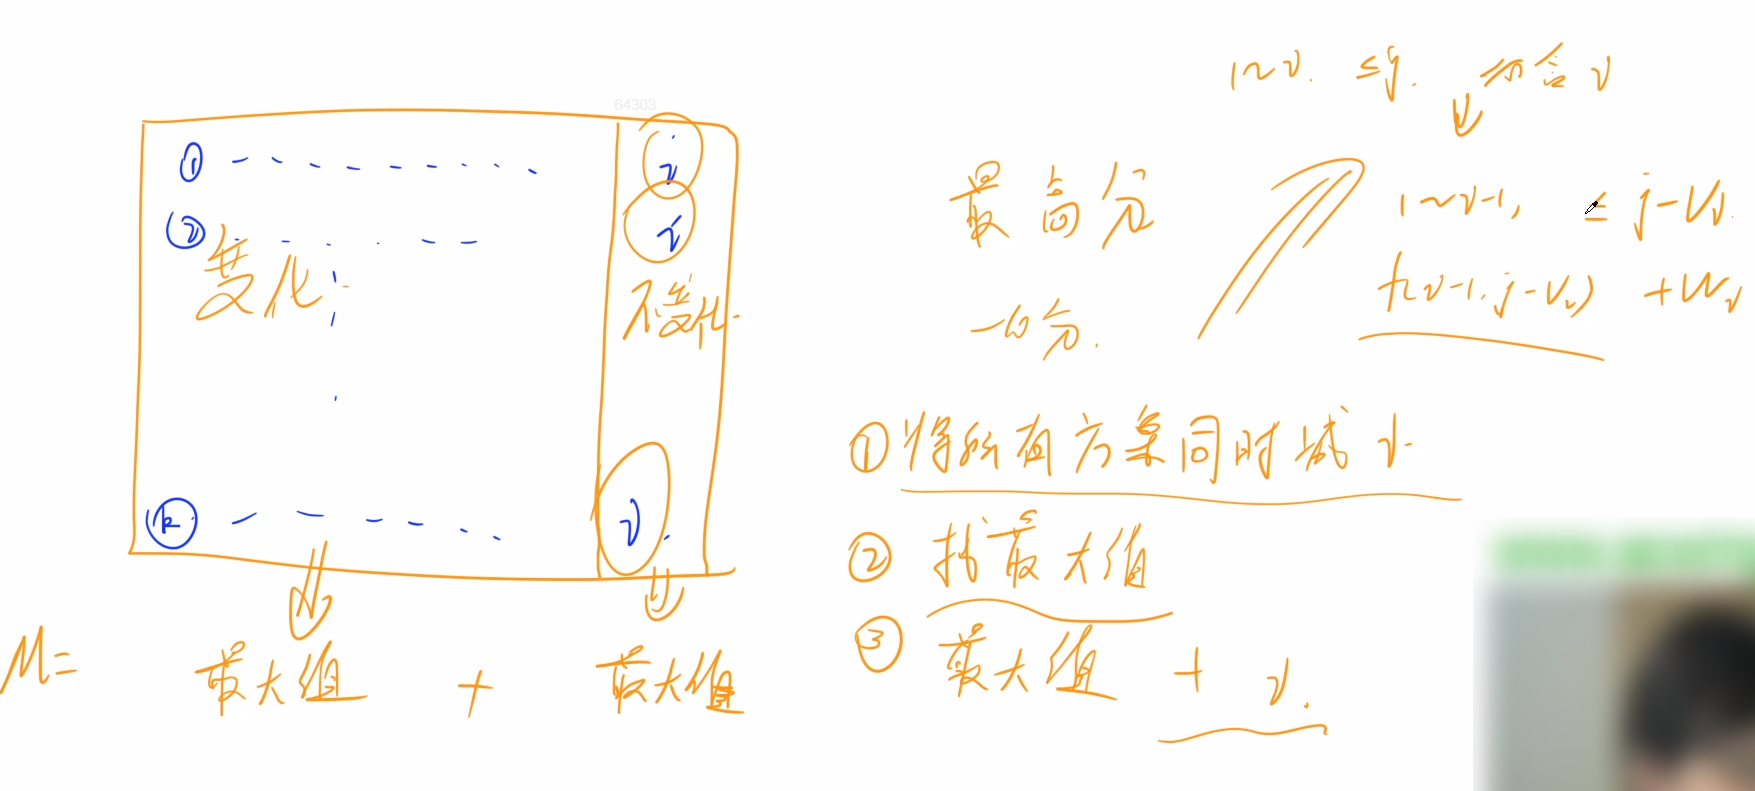 64303
1~i. ≤j. 都含 i
① - - - - - - - - i
② - - - - - i
变化
不变化
ⓚ - - - - - - i.
M= 最大值 + 最大值
最高分
一的分.
1~i-1, ≤ j-Vi.
f(i-1, j-Vi) + Wi
① 将所有方案同时减 i.
② 找最大值
③ 最大值 + i.